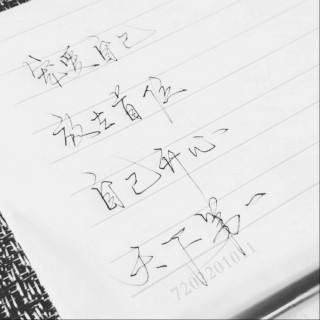 宠爱自己
放在首位
自己开心
天下第一